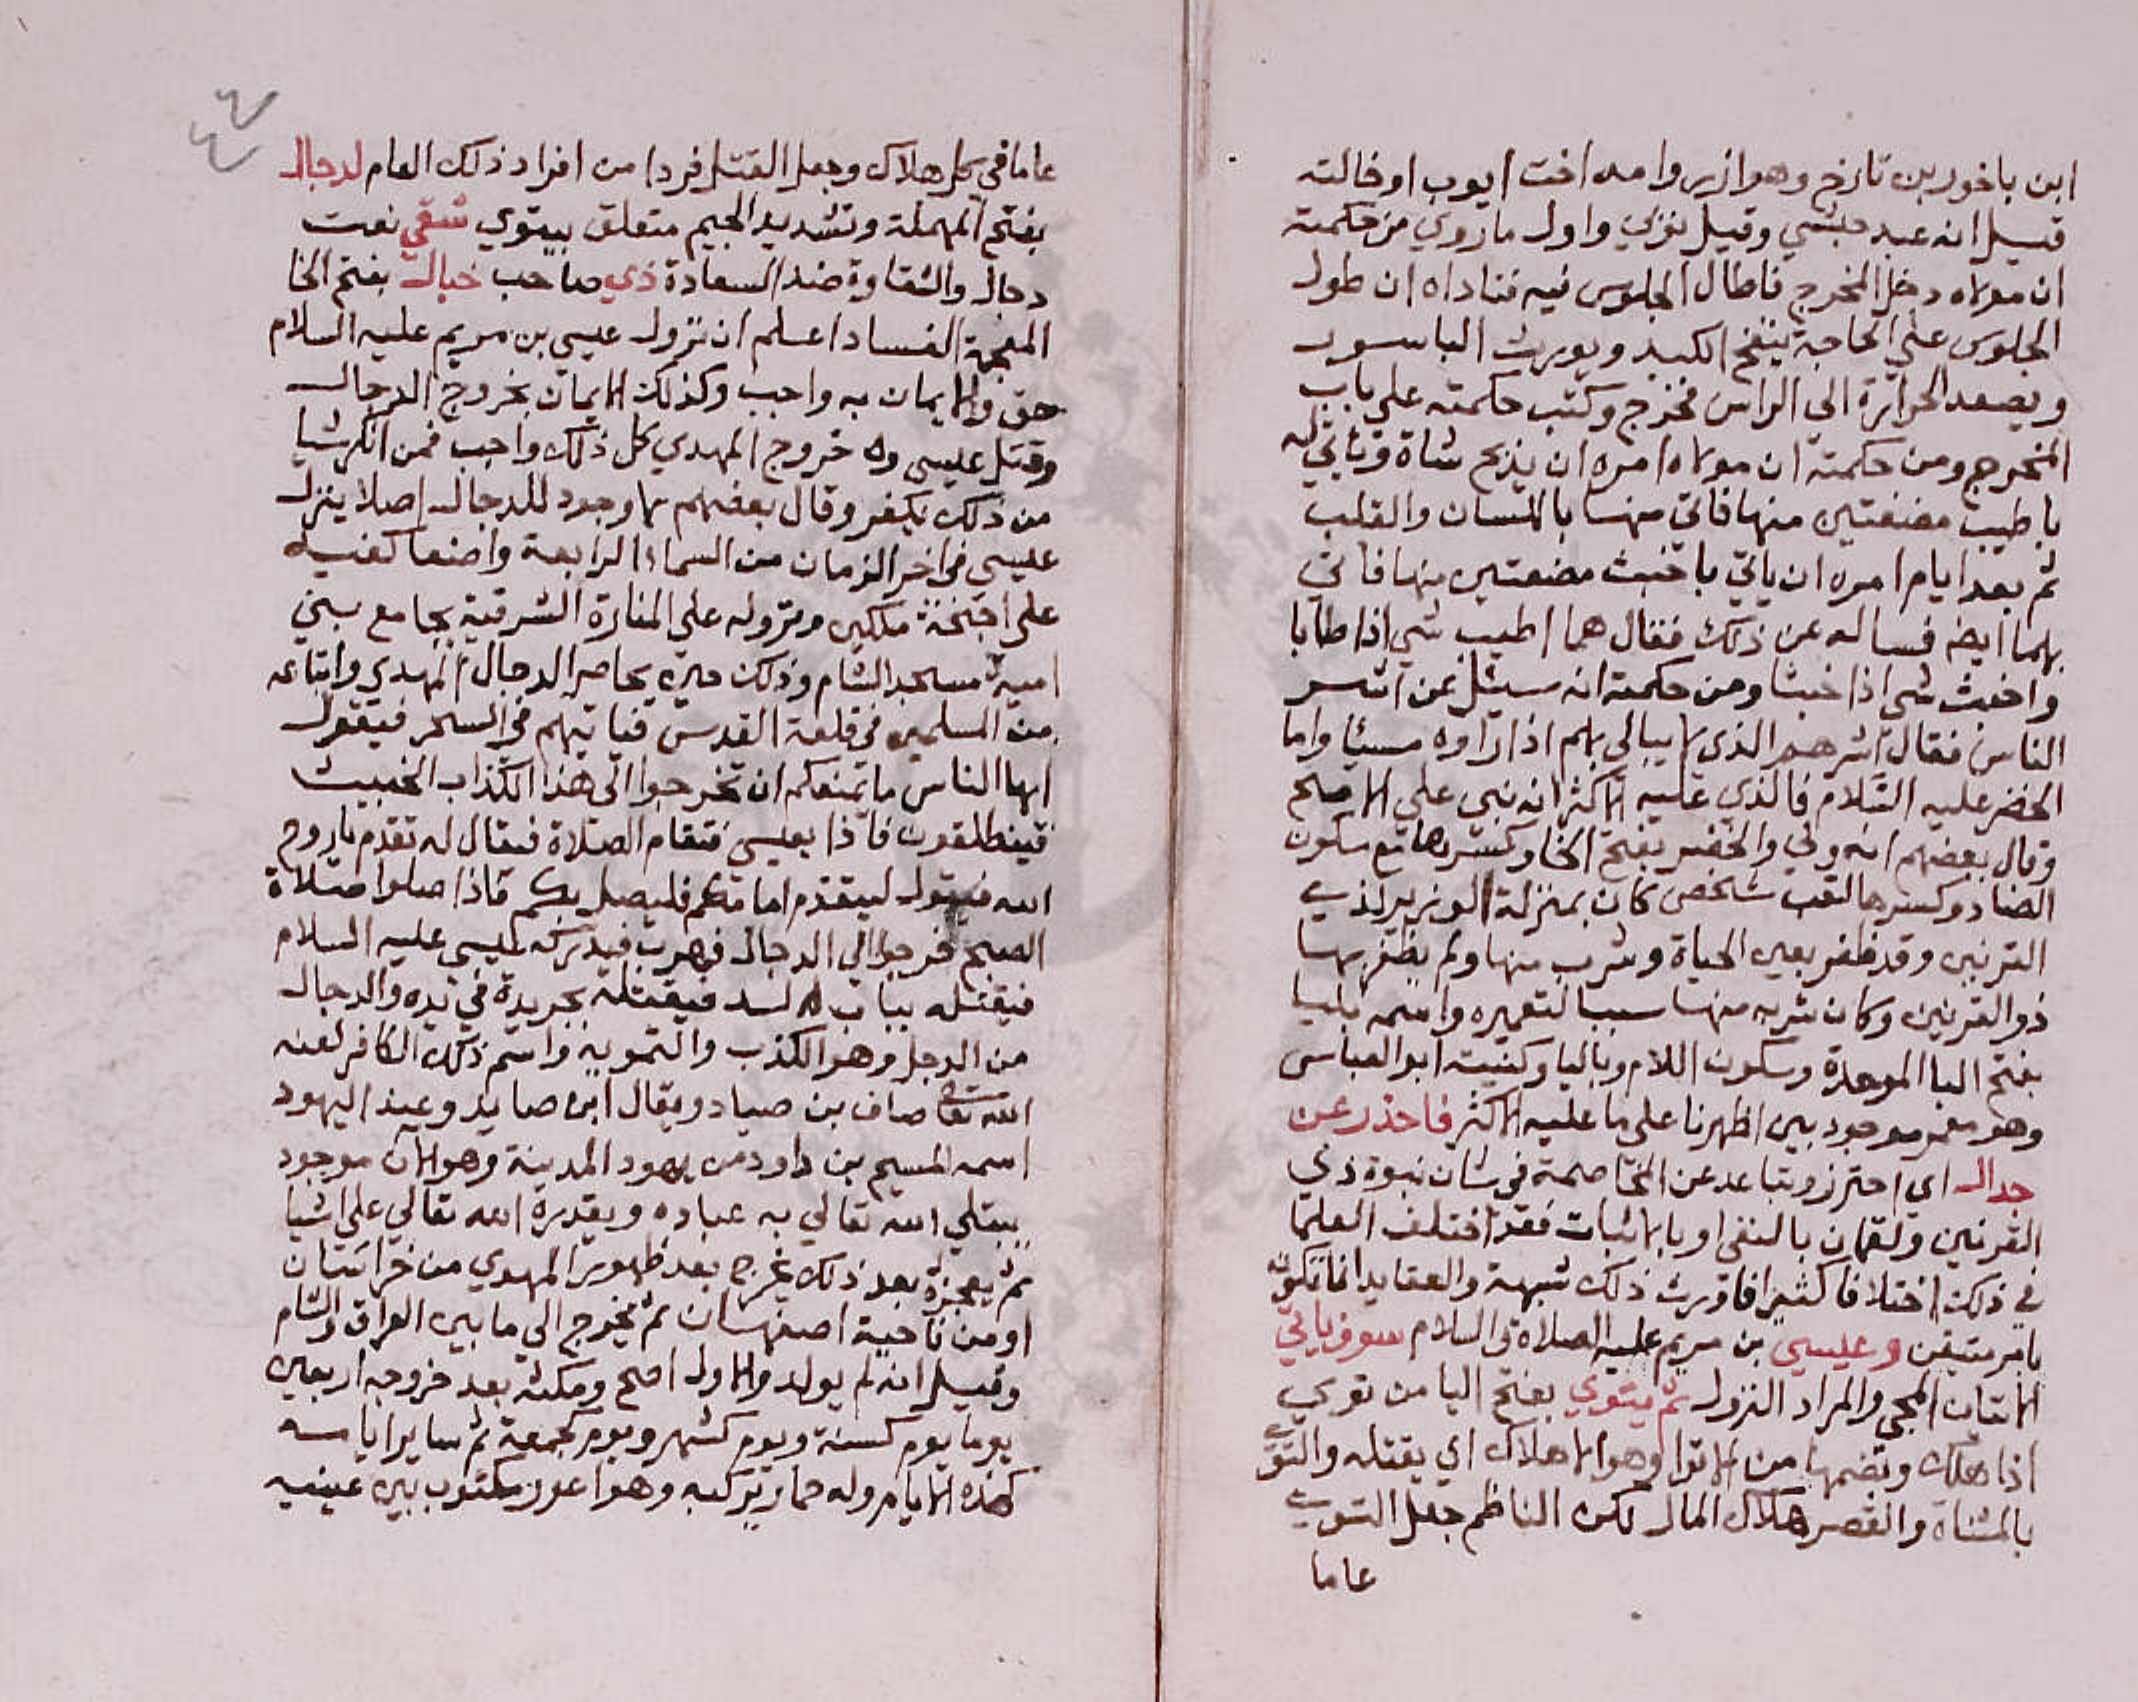 ابن باخور بن تارخ وهو ازر وامه اخت ايوب او خالته
قيل انه عبد حبشي وقيل نوبي واول ما روي من حكمته
ان مولاه دخل المخرج فاطال الجلوس فيه فناداه ان طول
الجلوس علي الحاجة ينفخ الكبد ويورث الباسور
ويصعد الحرارة الى الراس فخرج وكتب حكمته على باب
المخرج ومن حكمته ان مولاه امره ان يذبح شاة وياتي له
باطيب مضغتين منها فاتي منها باللسان والقلب
ثم بعد ايام امره ان ياتي باخبث مضغتين منها فاتي
بهما ايضا فساله عن ذلك فقال هما اطيب شي اذا طابا
واخبث شي اذا خبثا ومن حكمته انه سيئل عن اشر
الناس فقال اشرهم الذي لا يبالي بهم اذا راوه مسيئا واما
الخضر عليه السلام فالذي عليه الاكثر انه نبي علي الاصح
وقال بعضهم انه ولي والخضر بفتح الخا وكسرها مع سكون
الضاد وكسرها لقب شخص كان بمنزلة الوزير لذي
القرنين وقد ظفر بعين الحياة وشرب منها ولم يظفر بها
ذو القرنين وكان شربه منها سببا لتعميره واسمه بليا
بفتح البا الموحدة وسكون اللام وباليا وكنيته ابو العباس
وهو معمر موجود بين اظهرنا على ما عليه الاكثر فاحذر عن
جدال اي احترز وتباعد عن المخاصمة في شان نبوة ذي
القرنين ولقمان بالنفي او بالاثبات فقد اختلف العلما
في ذلك اختلافا كثيرا فاورث ذلك شبهة والعقايد انما تكون
بامر متيقن وعيسي بن مريم عليه الصلاة والسلام سوف ياتي
الاتيان المجي والمراد النزول ثم يتوي بفتح اليا من توي
اذا هلك وبضمها من الاتوا وهو الاهلاك اي يقتله والتوي
بالمثناة والقصر هلاك المال لكن الناظم جعل التوي
عاما
عاما في كل هلاك وجعل القتل فردا من افراد ذلك العام لدجال
بفتح المهملة وتشديد الجيم متعلق بيتوي شقي نعت
دجال والشقاوة ضد السعادة ذي صاحب خبال بفتح الخا
المعجمة الفساد اعلم ان نزول عيسي بن مريم عليه السلام
حق والايمان به واجب وكذلك الايمان بخروج الدجال
وقتل عيسى له خروج المهدي كل ذلك واجب فمن انكر شيا
من ذلك يكفر وقال بعضهم لا وجود للدجال اصلا ينزل
عيسي في اخر الزمان من السما الرابعة واضعا كفيه
على اجنحة ملكين ونزوله علي المنارة الشرقية بجامع بني
امية مسجد الشام وذلك حين يحاصر الدجال المهدي واتباعه
من المسلمين في قلعة القدس فياتيهم في السحر فيقول
ايها الناس ما يمنعكم ان تخرجوا الى هذا الكذاب الخبيث
فينطلقون فاذا بعيسي فتقام الصلاة فيقال له تقدم ياروح
الله فيقول ليتقدم امامكم فليصل بكم فاذا صلوا صلاة
الصبح خرجوا الي الدجال فهرب فيدركه عيسي عليه السلام
فيقتله بباب لد فيقتله بحربة في يده والدجال
من الدجل وهو الكذب والتمويه واسم ذلك الكافر لعنه
الله تعالى صاف بن صياد ويقال ابن صايد وعند اليهود
اسمه المسيح بن داود من يهود المدينة وهو الان موجود
يبتلي الله تعالي به عباده ويقدره الله تعالي على اشيا
ثم يعجزه بعد ذلك يخرج بعد ظهور المهدي من خراسان
او من ناحية اصفهان ثم يخرج الي ما بين العراق والشام
وقيل انه لم يولد والاول اصح ومكثه بعد خروجه اربعين
يوما يوم كسنة ويوم كشهر ويوم كجمعة ثم ساير ايامه
كهذه الايام وله حمار يركبه وهو اعور مكتوب بين عينيه